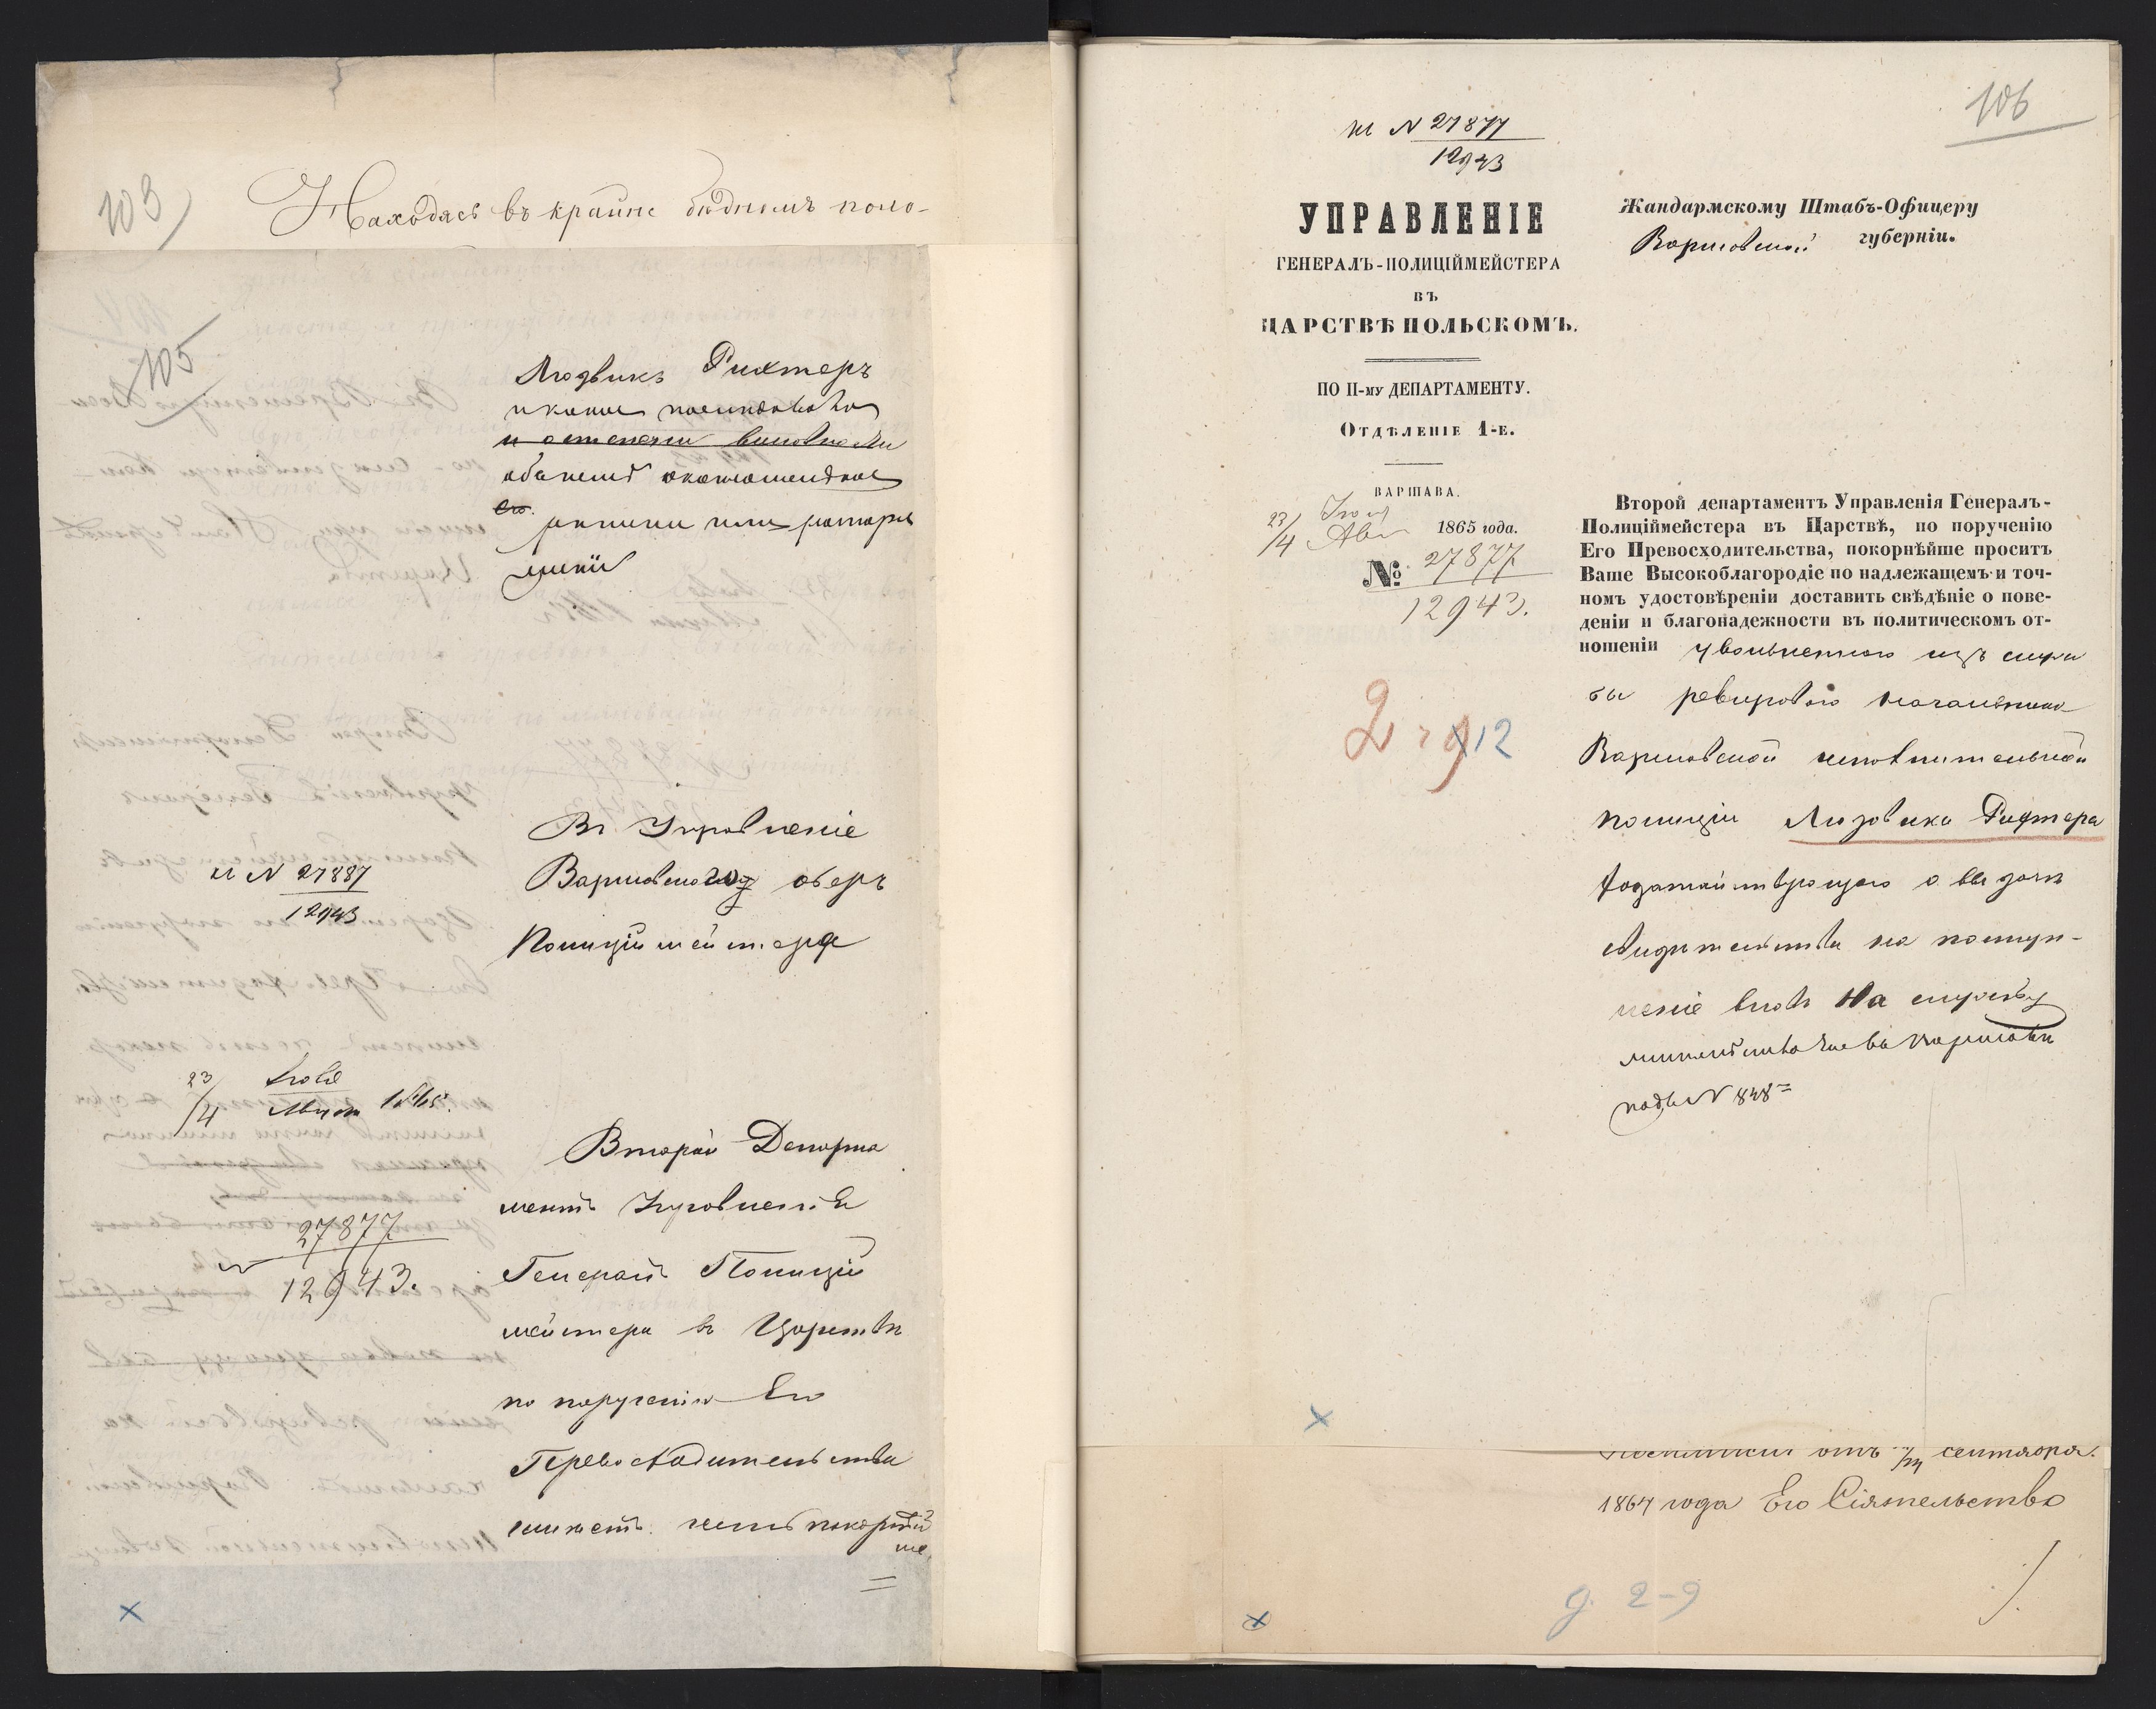 103
Находясь въ крайне бѣдномъ поло-
105
Людвикъ Рихтеръ
и какое последовало
и о степени виновности
объ немъ окончательное
его
решеніе или распоря
женіе
къ N 27887
12943
Въ Управленіе
Варшавскаго оберъ
Полиціймейстера
23/4 Іюля
Августа 1865.
27877
12943.
Второй Департа
ментъ Управленія
Генералъ Полицій
мейстера въ Царствѣ
по порученію Его
Превосходительства
имѣетъ честь покорнѣй
ше
106
къ N 27877
12943
УПРАВЛЕНІЕ
ГЕНЕРАЛЪ-ПОЛИЦІЙМЕЙСТЕРА
ВЪ
ЦАРСТВѢ ПОЛЬСКОМЪ.
ПО II-му ДЕПАРТАМЕНТУ.
Отдѣленіе 1-е.
ВАРШАВА.
23/4 Іюля
Авг 1865 года.
№ 27877
12943.
Жандармскому Штабъ-Офицеру
Варшавской губерніи.
Второй департаментъ Управленія Генералъ-
Полиціймейстера въ Царствѣ, по порученію
Его Превосходительства, покорнѣйше проситъ
Ваше Высокоблагородіе по надлежащемъ и точ-
номъ удостовѣреніи доставить свѣдѣніе о пове-
деніи и благонадежности въ политическомъ от-
ношеніи уволеннаго изъ служ
бы ревироваго начальника
Варшавской исполнительной
полиціи Людвика Рихтера
ходатайствующаго о выдачѣ
свидѣтельства на поступ-
леніе вновь на службу
жительствующаго въ Варшавѣ
подъ N 848
2 9 12
отъ сентября.
1864 года Его Сіятельство
д. 2-9